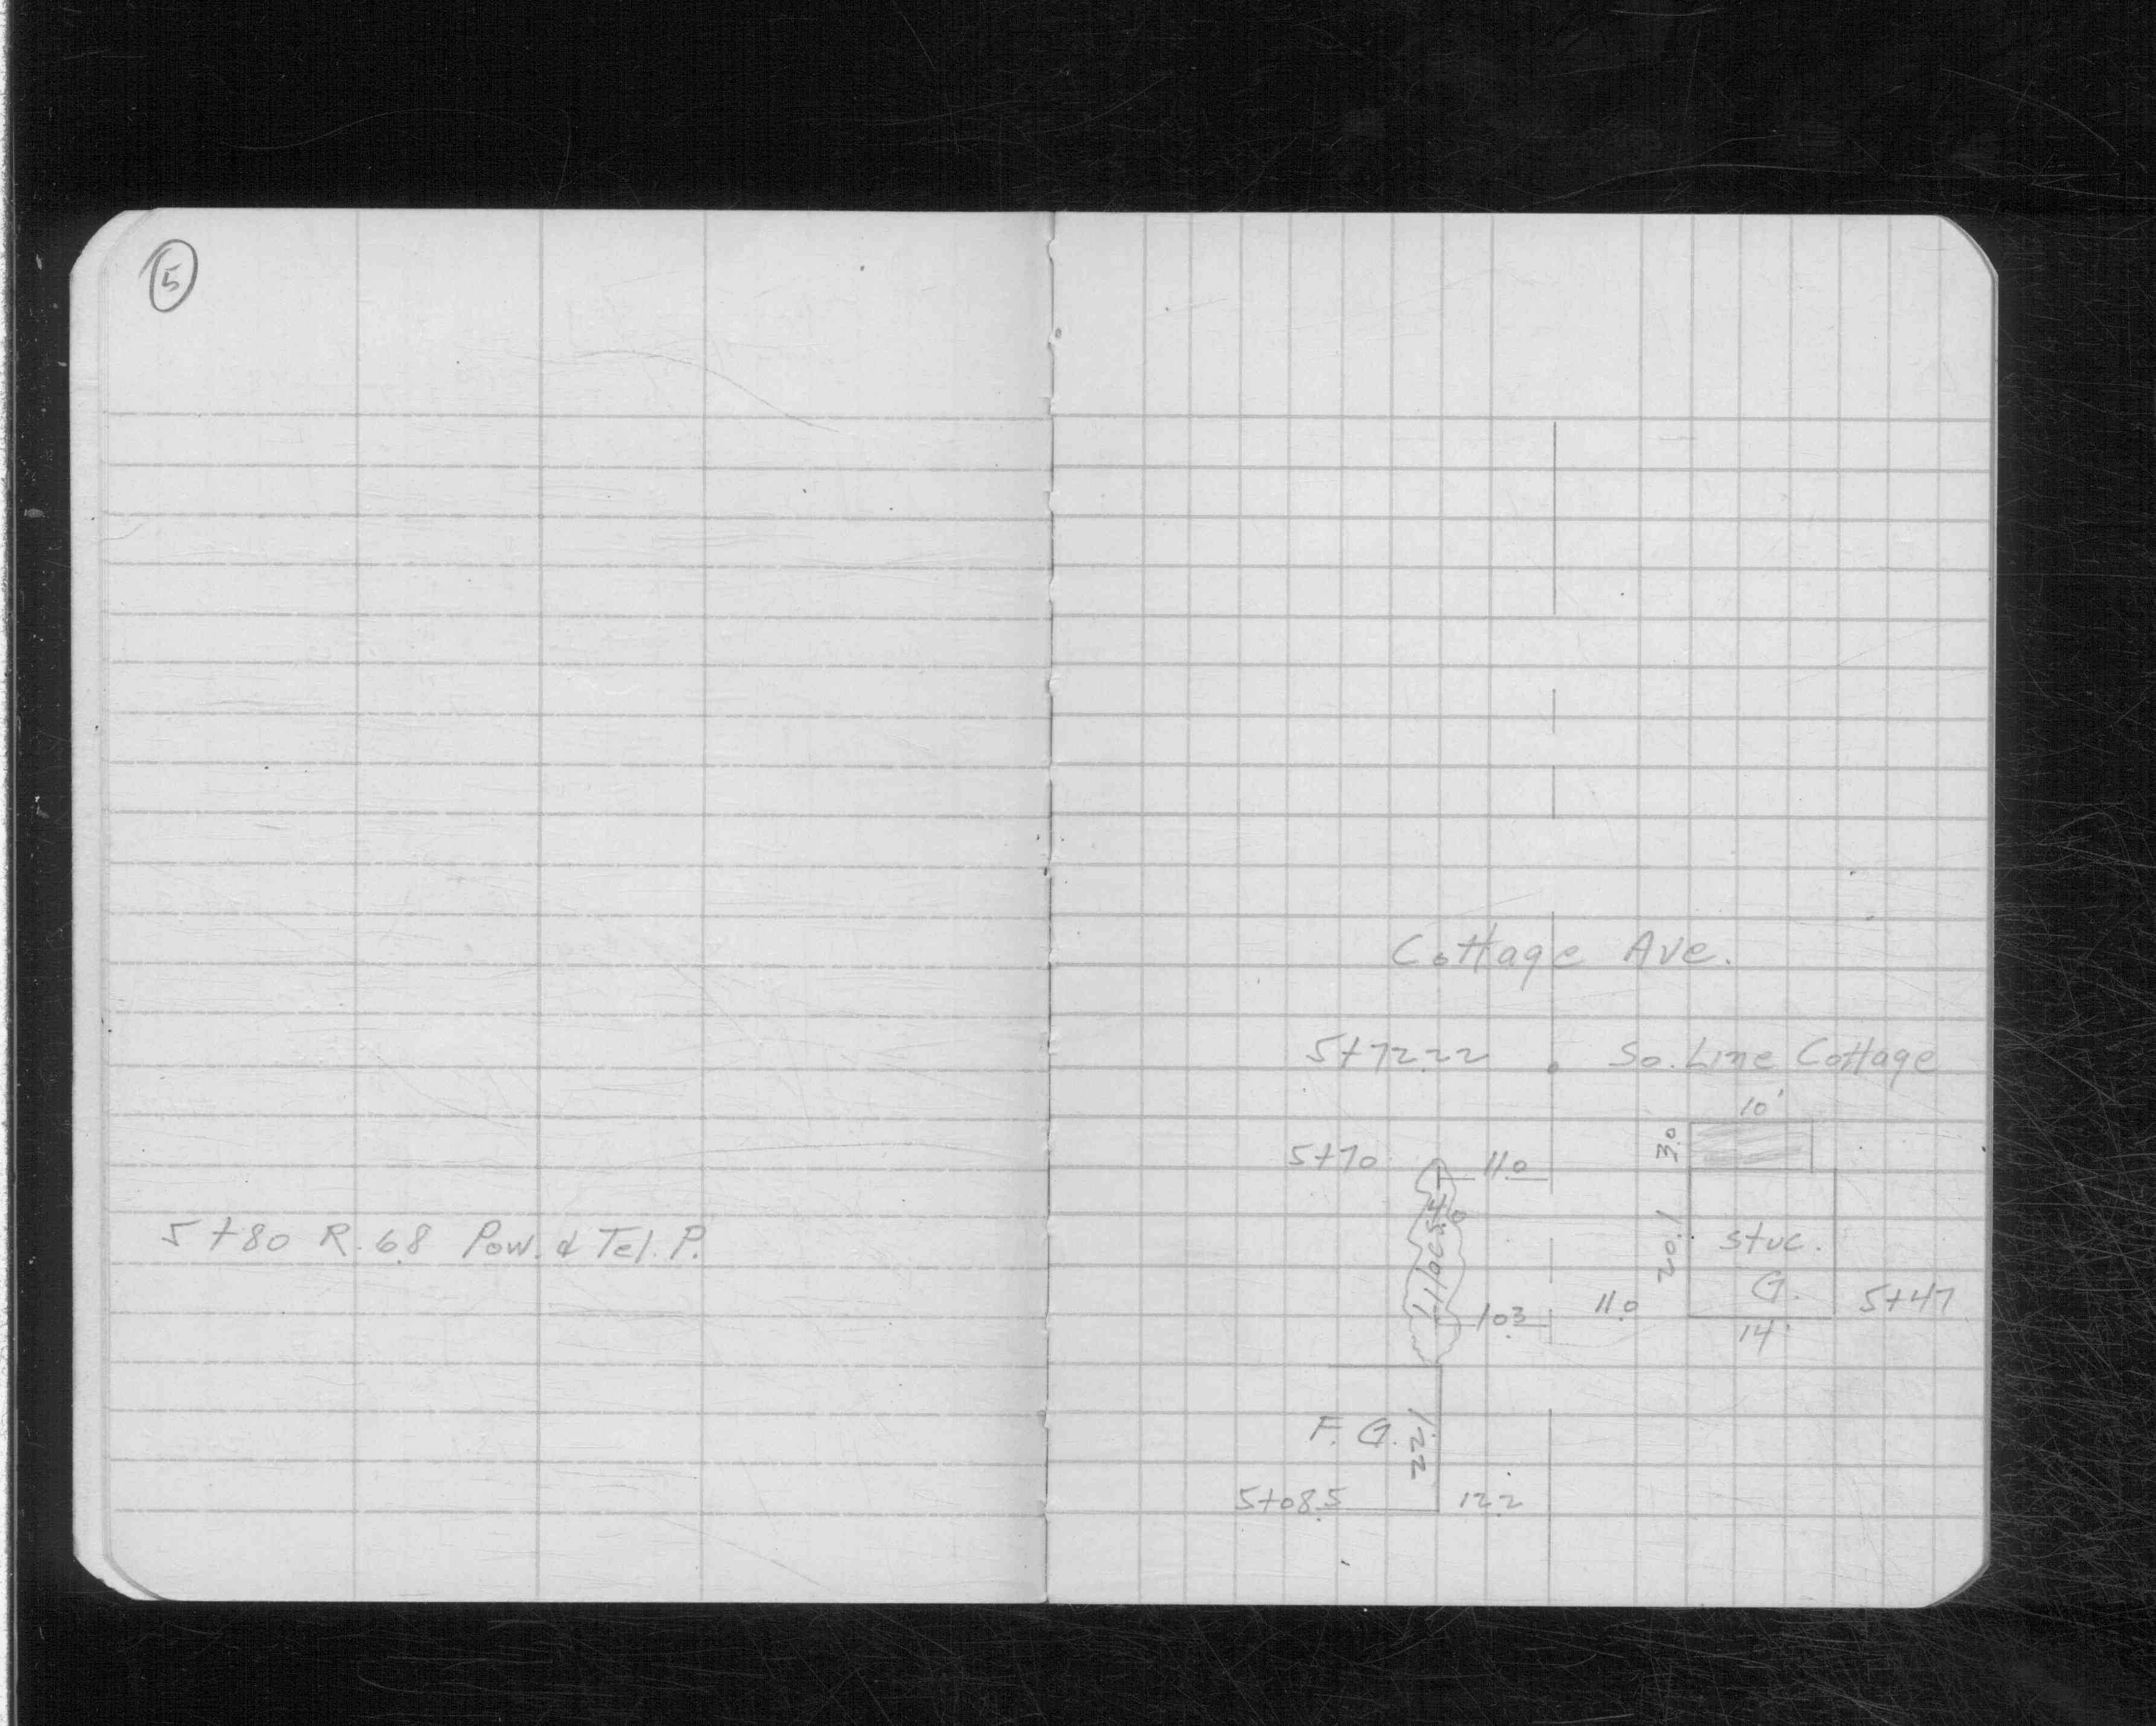 5
5+80 R. 6.8 Pow. & Tel. P.
Cottage Ave.
5+72.22 So. Line Cottage
10'
3.0
5+70 11.0
20.1
stuc.
G.
11.0
5+47
10.3
14'
F. G.
22.1
5+08.5 12.2